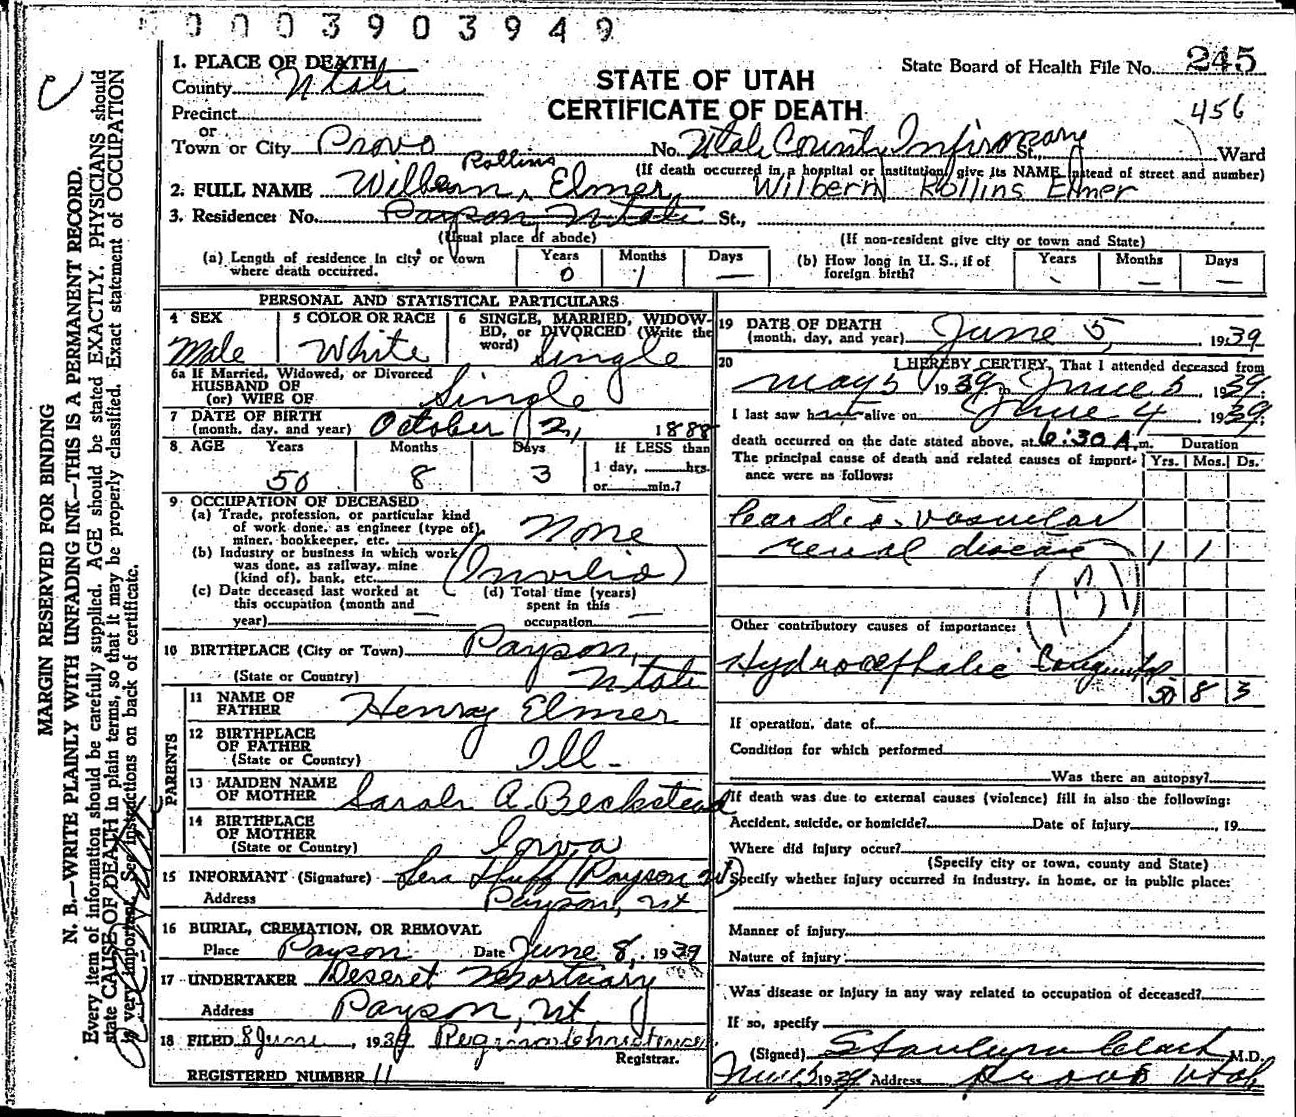 0003903949
State Board of Health File No. 245
456
STATE OF UTAH
CERTIFICATE OF DEATH
1. PLACE OF DEATH
County Utah
Precinct
or
Town or City Provo No. Utah County Infirmary St., Ward
(If death occurred in a hospital or institution, give its NAME instead of street and number)
Rollins
2. FULL NAME Wilbern, Elmer Wilbern Rollins Elmer
3. Residence: No. Payson Utah St.,
(Usual place of abode) (If non-resident give city or town and State)
(a) Length of residence in city or town where death occurred. Years 0 Months 1 Days —
(b) How long in U. S., if of foreign birth? Years Months — Days —
PERSONAL AND STATISTICAL PARTICULARS
4 SEX Male
5 COLOR OR RACE White
6 SINGLE, MARRIED, WIDOWED, or DIVORCED (Write the word) Single
6a If Married, Widowed, or Divorced
HUSBAND OF
(or) WIFE OF Single
7 DATE OF BIRTH
(month, day, and year) October 2, 1888
8 AGE Years 50 Months 8 Days 3 If LESS than 1 day, hrs. or min.?
9 OCCUPATION OF DECEASED
(a) Trade, profession, or particular kind
of work done, as engineer (type of),
miner, bookkeeper, etc. None
(b) Industry or business in which work
was done, as railway, mine
(kind of), bank, etc. (Invilid)
(c) Date deceased last worked at
this occupation (month and
year) —
(d) Total time (years)
spent in this
occupation —
10 BIRTHPLACE (City or Town) Payson,
(State or Country) Utah
PARENTS
11 NAME OF
FATHER Henry Elmer
12 BIRTHPLACE
OF FATHER
(State or Country) Ill.
13 MAIDEN NAME
OF MOTHER Sarah A. Beckstead
14 BIRTHPLACE
OF MOTHER
(State or Country) Iowa
15 INFORMANT (Signature) Huff (Payson Ut)
Address Payson, Ut
16 BURIAL, CREMATION, OR REMOVAL
Place Payson Date June 8, 1939
17 UNDERTAKER Deseret Mortuary
Address Payson, Ut
18 FILED 8 June, 1939
Registrar.
REGISTERED NUMBER 11
19 DATE OF DEATH
(month, day, and year) June 5, 1939
20 I HEREBY CERTIFY, That I attended deceased from
May 5 1939, to June 5 1939.
I last saw him alive on June 4 1939.
death occurred on the date stated above, at 6:30 A.m. Duration
The principal cause of death and related causes of importance were as follows: Yrs. Mos. Ds.
Cardio-vascular
renal disease 1 1
131
Other contributory causes of importance:
Hydrocephalic Congenital
50 8 3
If operation, date of
Condition for which performed
Was there an autopsy?
If death was due to external causes (violence) fill in also the following:
Accident, suicide, or homicide? Date of injury , 19
Where did injury occur?
(Specify city or town, county and State)
Specify whether injury occurred in industry, in home, or in public place:
Manner of injury
Nature of injury
Was disease or injury in any way related to occupation of deceased?
If so, specify
(Signed) Clark M.D.
June 5 1939 Address Provo Utah
MARGIN RESERVED FOR BINDING
N. B.—WRITE PLAINLY WITH UNFADING INK—THIS IS A PERMANENT RECORD.
Every item of information should be carefully supplied. AGE should be stated EXACTLY. PHYSICIANS should
state CAUSE OF DEATH in plain terms, so that it may be properly classified. Exact statement of OCCUPATION
is very important. See instructions on back of certificate.